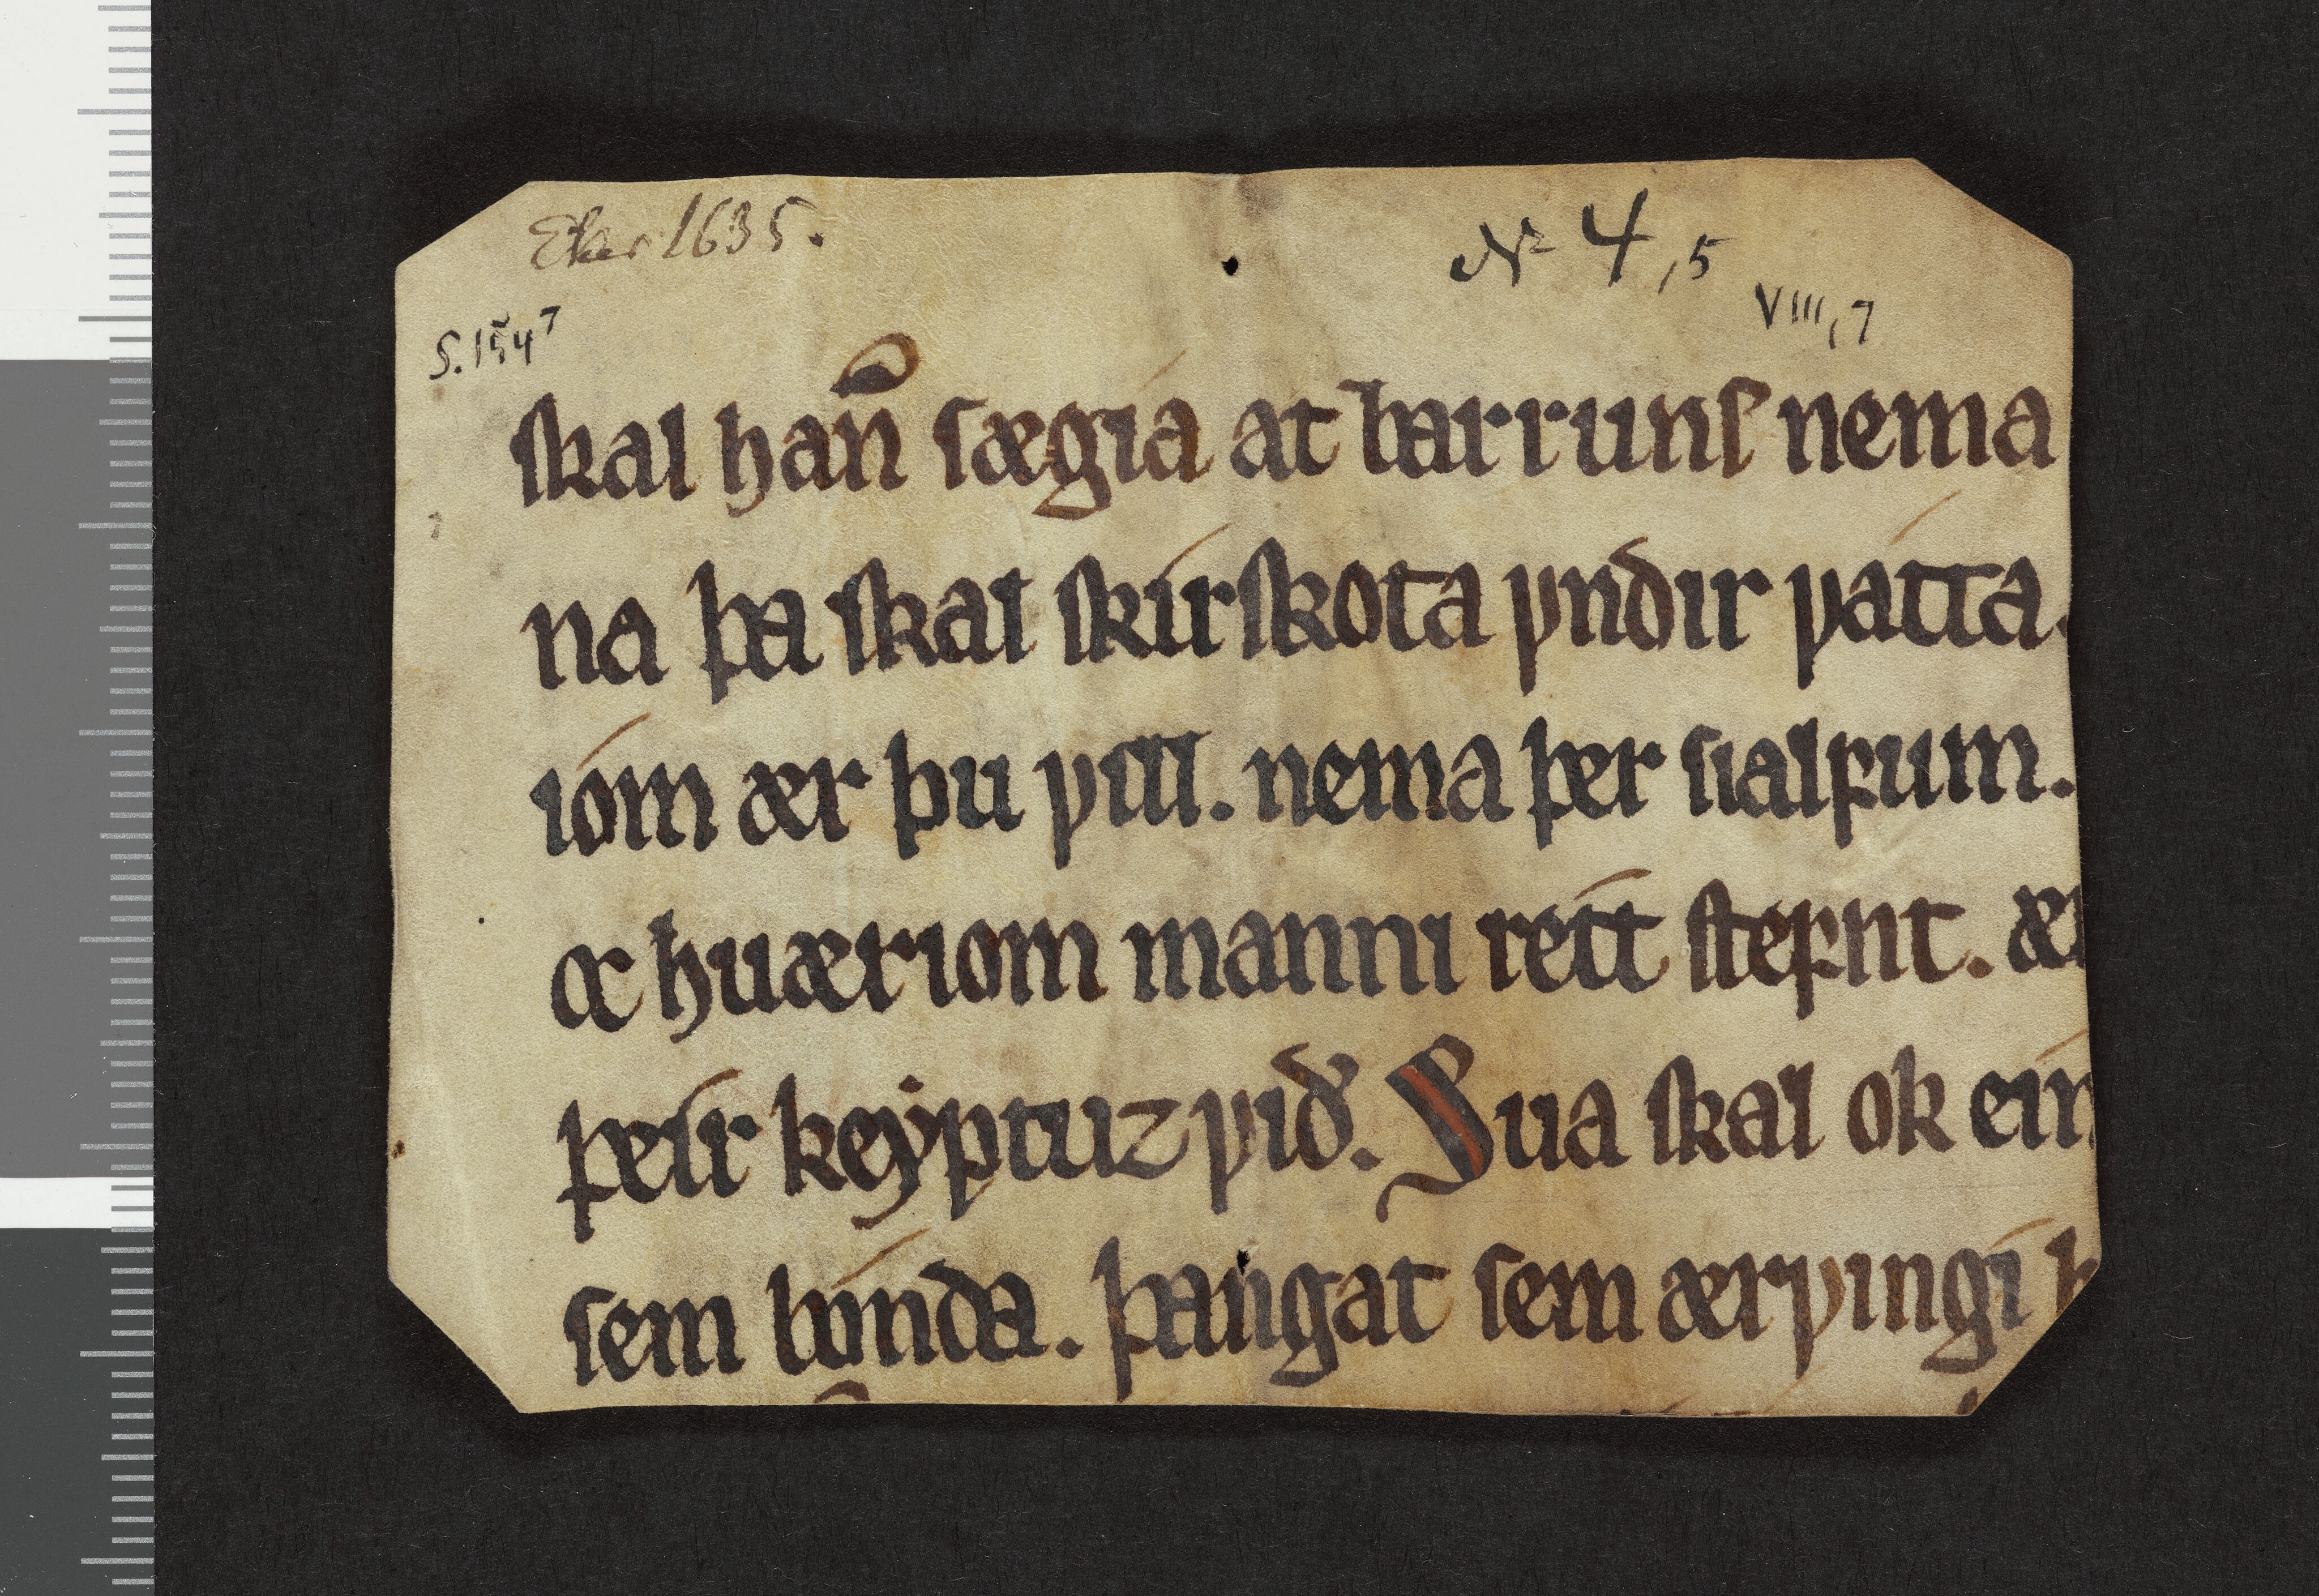 Eker 1635.
N° 4,5
VIII,7
S. 154 7
ſkal han̄ ſægia at barrunſ nema
na þa ſkal ſkirſkota ꝩndir ꝩátta.
ióm ær þu ꝩill. nema þer ſialꝼum.
oc huæriom manni rétt ſteꝼnt. æ
ꝼeſir keẏptuz ꝩið. Sua ſkal ok ein
ſem bónda. þangat ſem ær ꝩingi h